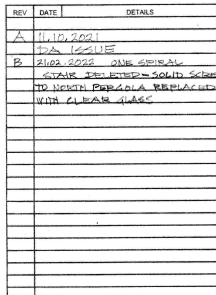 REV DATE DETAILS
A 11.10.2021
DA ISSUE
B 21.02.2022 ONE SPIRAL
STAIR DELETED - SOLID SCRE
TO NORTH PERGOLA REPLACED
WITH CLEAR GLASS